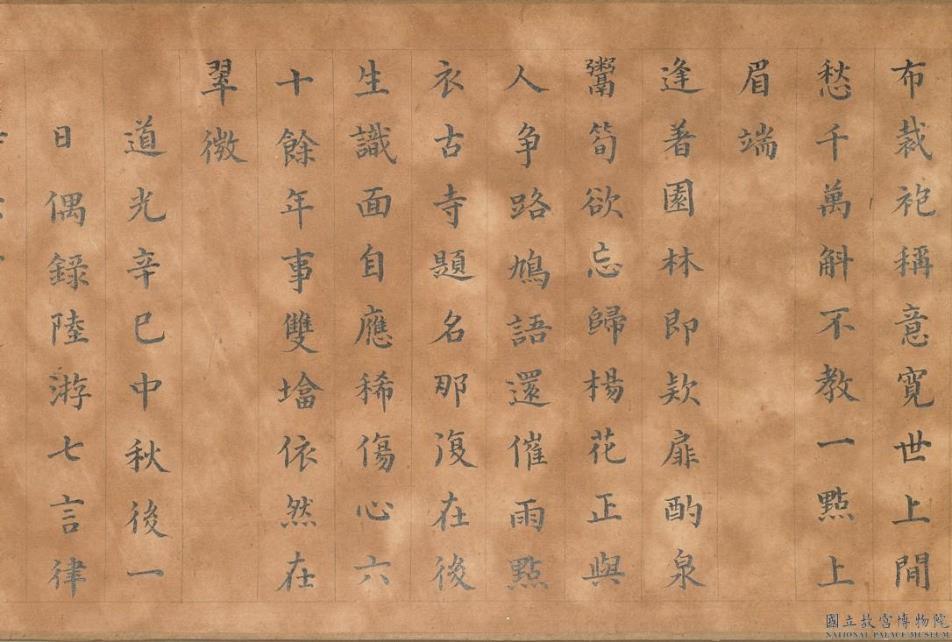 布裁袍稱意寬世上閒
愁千萬斛不教一點上
眉端
逢著園林即款扉酌泉
鬻筍欲忘歸楊花正與
人爭路鳩語還催雨點
衣古寺題名那復在後
生識面自應稀傷心六
十餘年事雙墖依然在
翠微
道光辛巳中秋後一
日偶錄陸游七言律
國立故宮博物院
NATIONAL PALACE MUSEUM